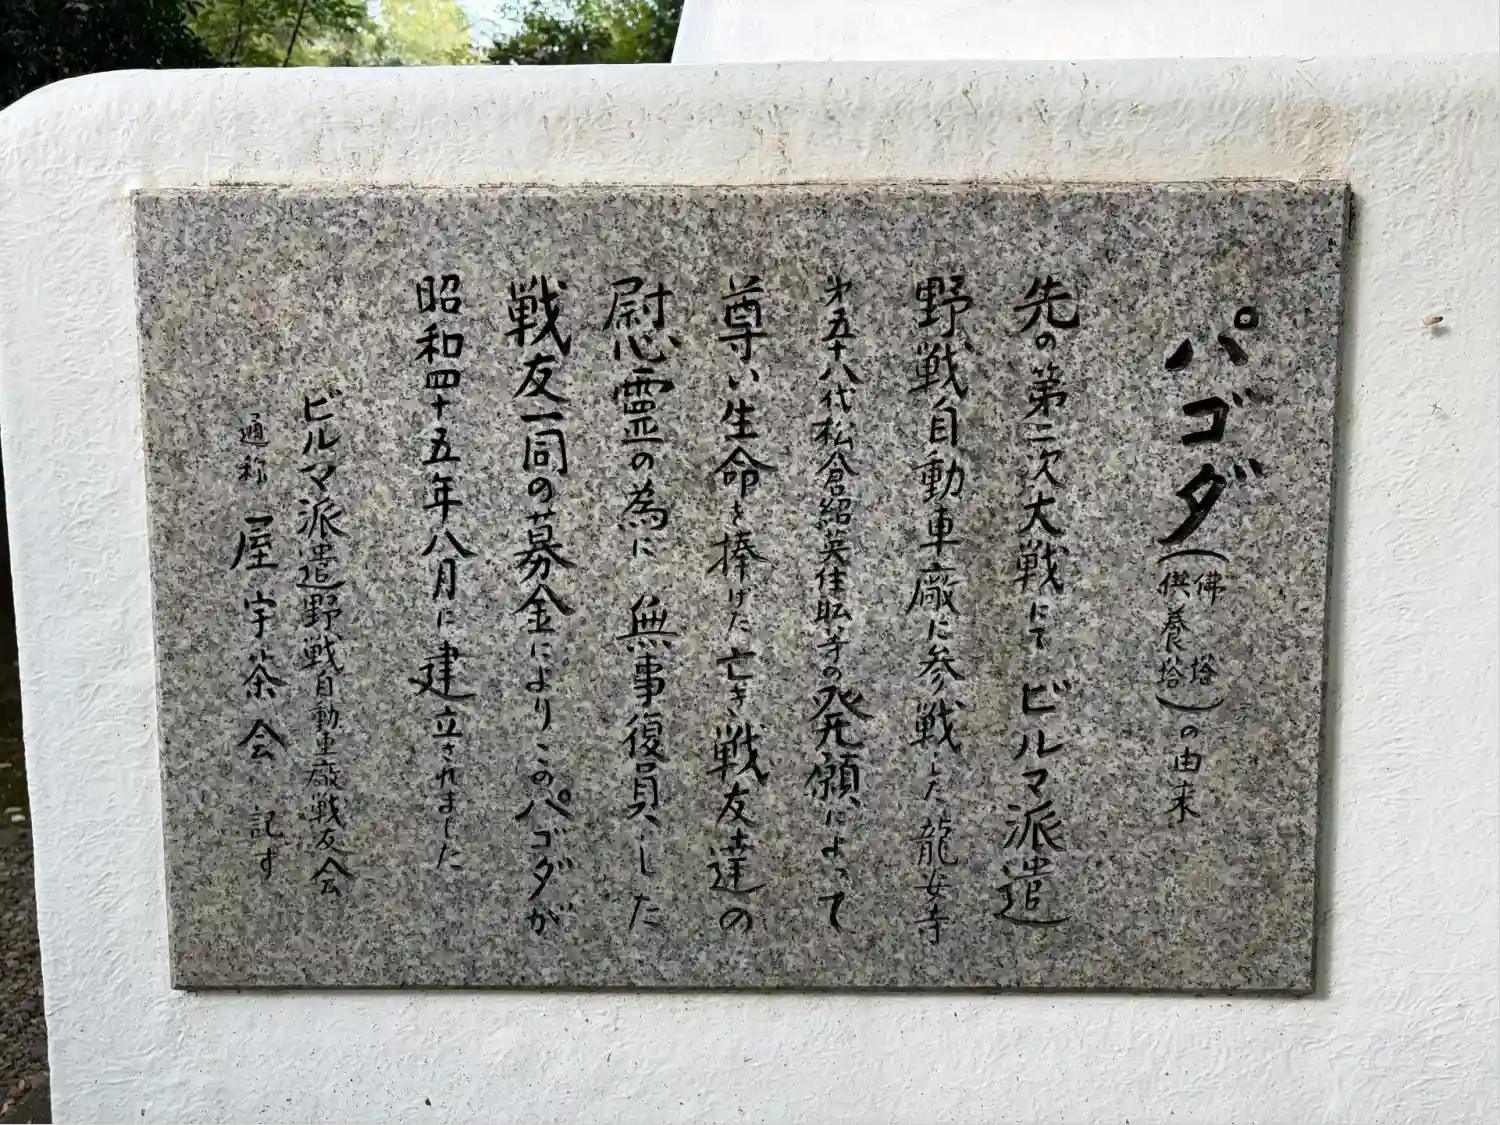 パゴダ(佛塔 供養塔)の由来
先の第二次大戦にてビルマ派遣
野戦自動車廠に参戦した龍女寺
第五十八代松倉紹英住職等の発願によって
尊い生命を捧げた亡き戦友達の
慰霊の為に 無事復員した
戦友一同の募金によりこのパゴダが
昭和四十五年八月に建立されました
ビルマ派遣野戦自動車廠戦友会
通称 屋宇茶会 記す